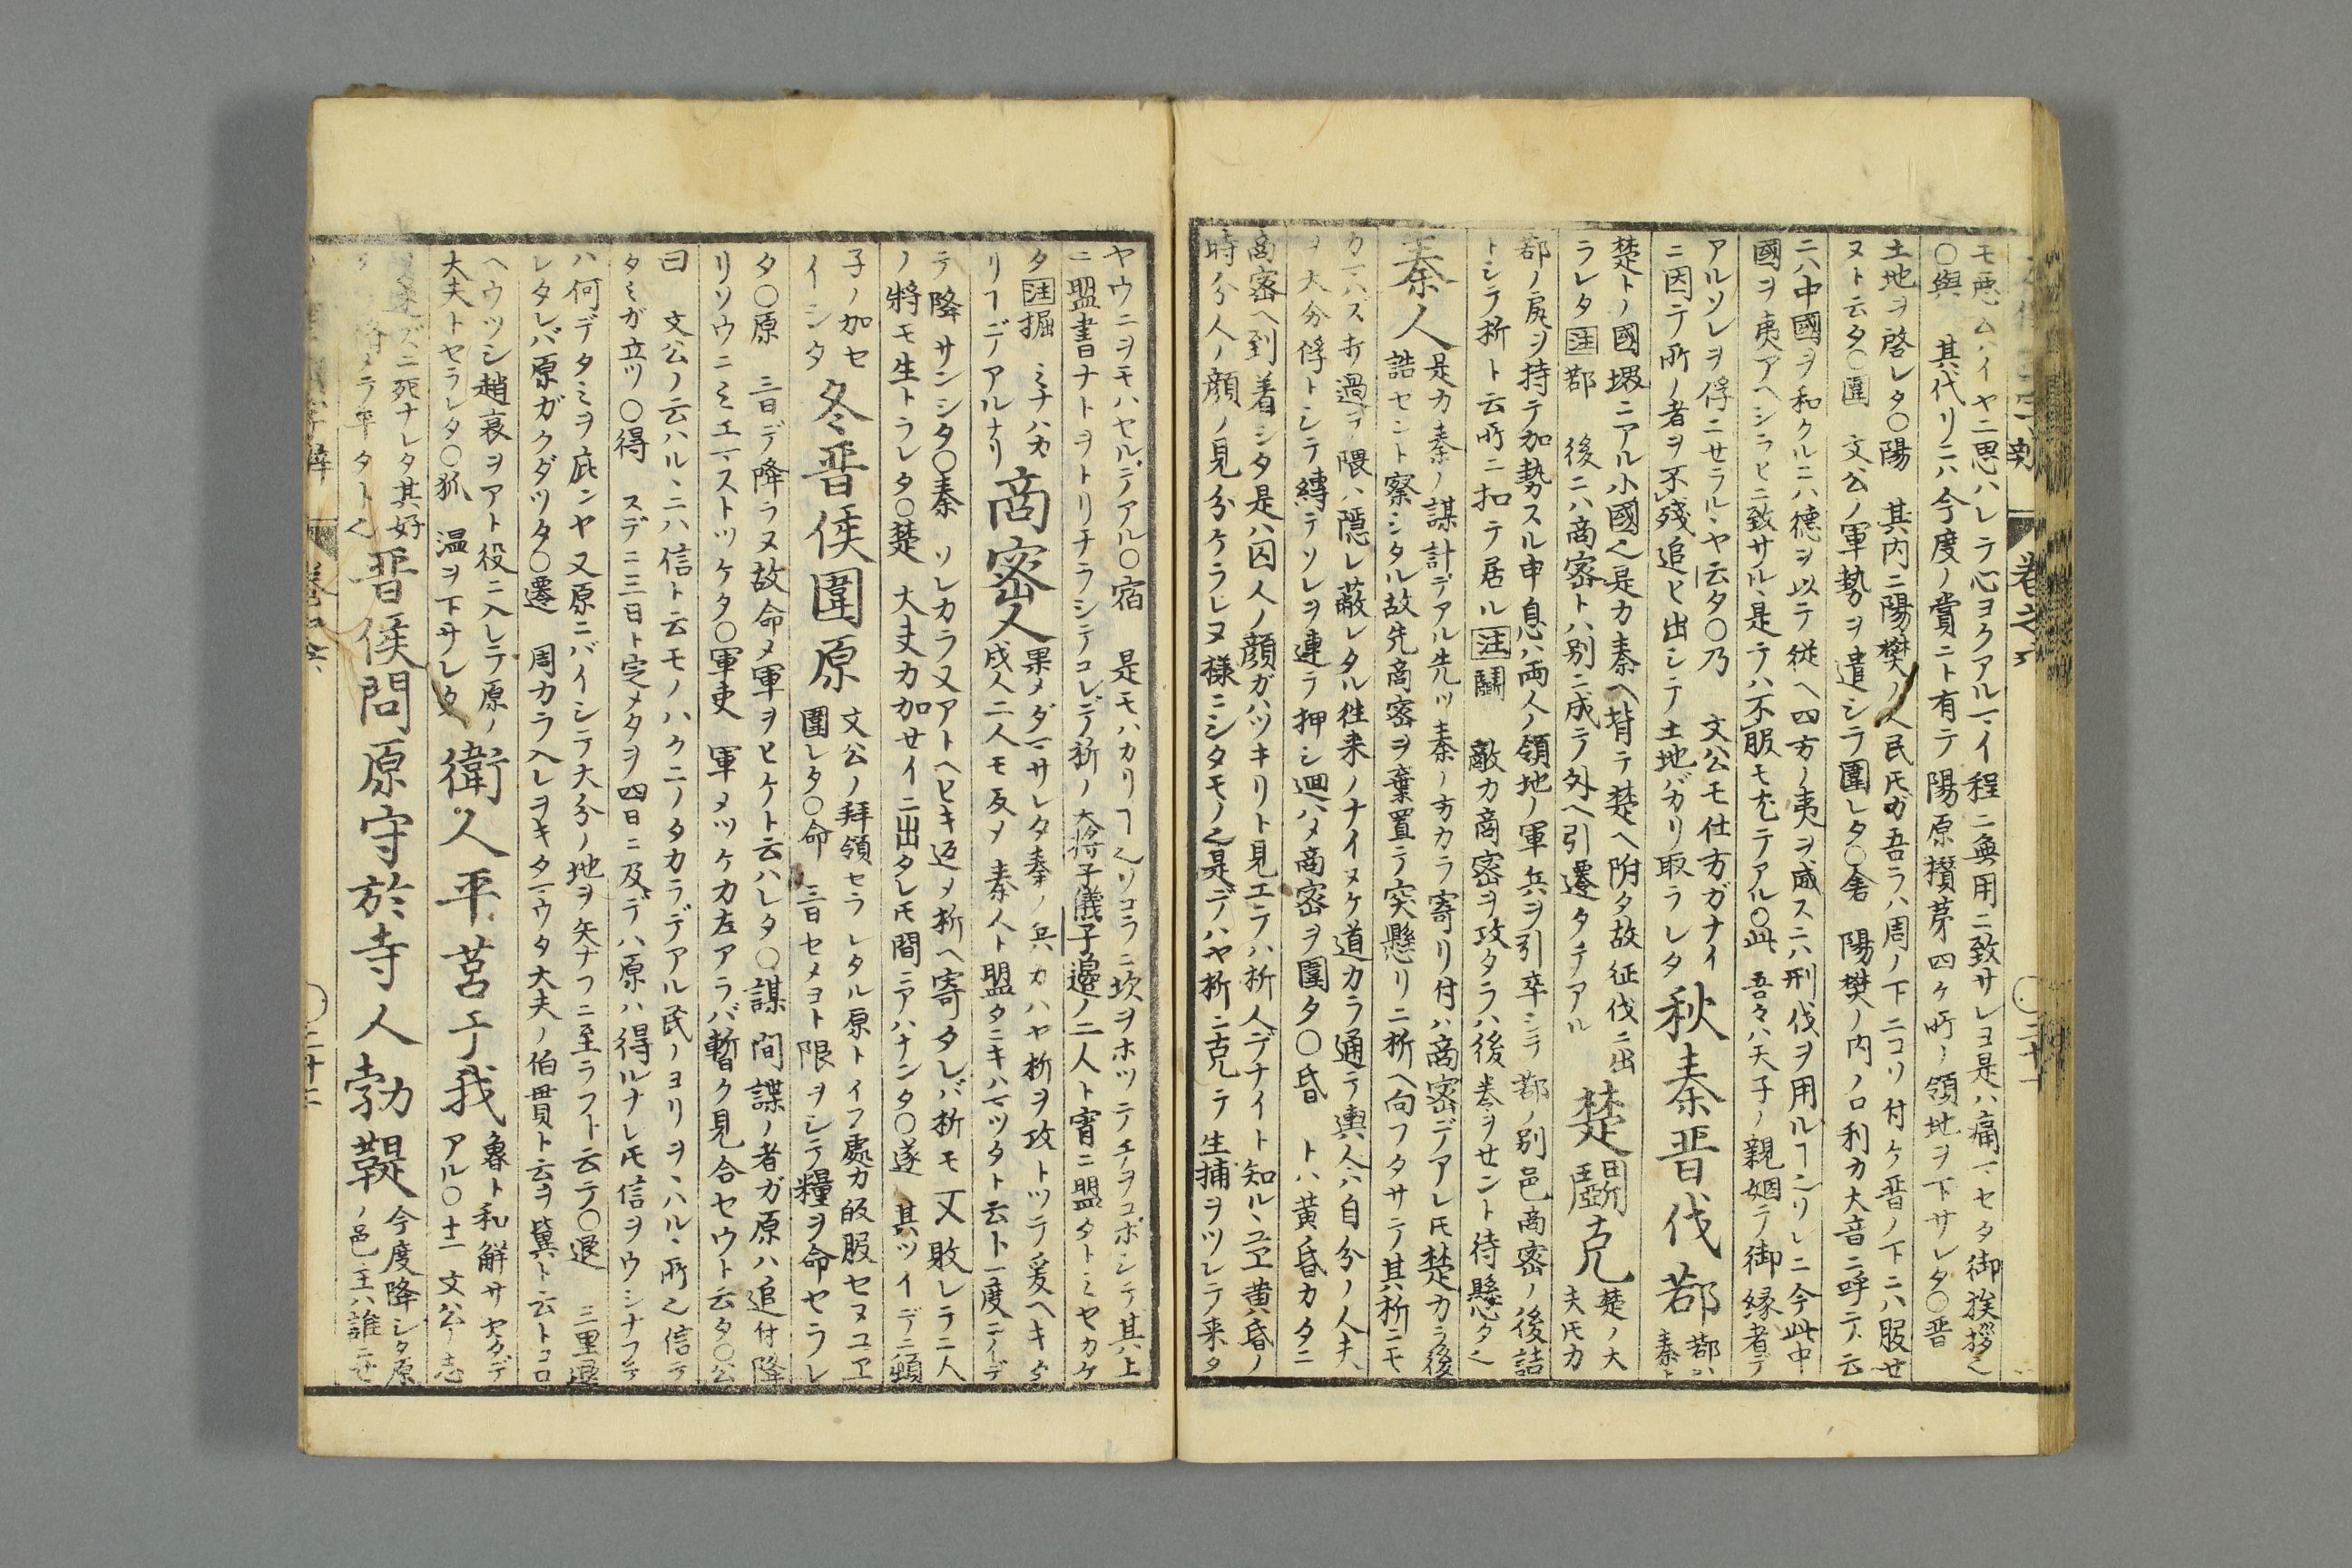 土地ヲ啓レタ〇陽 其内ニ陽樊ノ人民𪜈ガ吾ラハ周ノ下ニコソ付ケ晋ノ下ニハ服せ
〇與 其代リニハ今度ノ賞ニト有テ陽原攅茅四ケ所ノ領地ヲ下サレタ〇晋
ヌト云タ〇圍 文公ノ軍勢ヲ遣シテ圍レタ〇舎 陽樊ノ内ノ口利カ大音ニ呼テ云
ニハ中國ヲ和クルニハ德ヲ以テ從ヘ四方ノ夷ヲ威スニハ刑伐ヲ用ル
國ヲ夷アヘシラヒニ致サルヽ是テハ不服モ尤テアル〇此 吾々ハ天子ノ親姻テ御縁者デ
アルソレヲ俘ニセラルヽヤト云タ〇乃 文公モ仕方ガナイ
ニ因テ所ノ者ヲ不殘追ヒ出シテ土地バカリ取ラレタ
秋秦晋伐鄀
鄀ハ
楚トノ國堺ニアル小國
是カ秦ヘ背テ楚ヘ附タ故征伐ニ出
ラレタ 注 鄀 後ニハ商密トハ別ニ成テ外ヘ引遷タテアル
楚鬭克
楚ノ大
夫𪜈カ
鄀ノ尻ヲ持テ加勢スル申息ハ両人ノ領地ノ軍兵ヲ引卒シテ鄀ノ別邑商密ノ後詰
トシテ析ト云所ニ扣テ居ル 注 鬭 敵カ商密ヲ攻タラハ後巻ヲせント待懸タ
秦人
是カ秦ノ謀計デアル先ツ秦ノ方カラ寄リ付ハ商密デアレ𪜈楚カラ後
詰セント察シタル故先商密ヲ棄置テ突懸リニ析ヘ向フタサテ其析ニモ
カマハス打過ヲ 隈ハ隠レ蔽レタル徃来ノナイヌケ道カラ通テ輿人ハ自分ノ人夫
ヲ大分俘トシテ縛テソレヲ連テ押シ廻メ商密ヲ圍タ〇昏 トハ黄昏カタニ
商密ヘ到着シタ是ハ囚人ノ顔ガハツキリト見エテハ析人デナイト知ルヽユヱ黄昏ノ
時分人ノ顔ノ見分ケラレヌ様ニシタモノ
是デハヤ析ニ克テ生捕ヲツレテ来タ
ヤウニヲモハセルデアル〇宿 是モハカリ
ソコラニ坎ヲホツテチヲコボシテ其上
ニ盟書ナトヲトリチラシテコレデ析ノ大将子儀子邉ノ二人ト宵ニ盟タトミセカケ
タ 注 掘 ミナハカ
リ
デアルナリ
商密人
戍人二人モ反メ秦人ト盟タニキハマツタト云ト一度ニイデ
テ降サンシタ〇秦 ソレカラ又アトヘヒキ返メ析ヘ寄タレバ析モ又敗レテ二人
ノ將モ生トラレタ〇楚 大丈カ加せイニ出タレ𪜈間ニアハナンタ〇遂 其ツイデニ頓
子ノ加セ
イシタ
冬晋侯圍原
文公ノ拜領セラレタル原トイフ處カ的服セヌユヱ
圍レタ〇命 三日セメヨト限ヲシテ糧ヲ命セラレ
タ〇原 三日デ降ラヌ故命メ軍ヲヒケト云ハレタ〇謀 間諜ノ者ガ原ハ追付降
リソウニミエマストツケタ〇軍吏 軍メツケカ左アラバ暫ク見合セウト云タ〇公
曰 文公ノ云ハルヽニハ信ト云モノハクニノタカラデアル民ノヨリヲヽハルヽ所
信テ
タミガ立ツ〇得 スデニ三日ト定メタヲ四日ニ及デハ原ハ得ルナレ𪜈信ヲウシナフテ
ハ何デタミヲ庇ンヤ又原ニバイシテ大分ノ地ヲ矢ナフニ至ラフト云テ〇退 三里退
レタレバ原ガクダツタ〇遷 周カラ入レヲキタマウタ大夫ノ伯貫ト云ヲ冀ト云トコロ
ヘウツシ趙衰ヲアト役ニ入レテ原ノ
大夫トセラレタ〇狐 温ヲ下サレタ
衛人平莒于我
魯ト和解サセタデ
アル〇十二 文公ノ志
晋侯問原守於寺人勃鞮
今度降シタ原
ノ邑主ハ誰ニせ